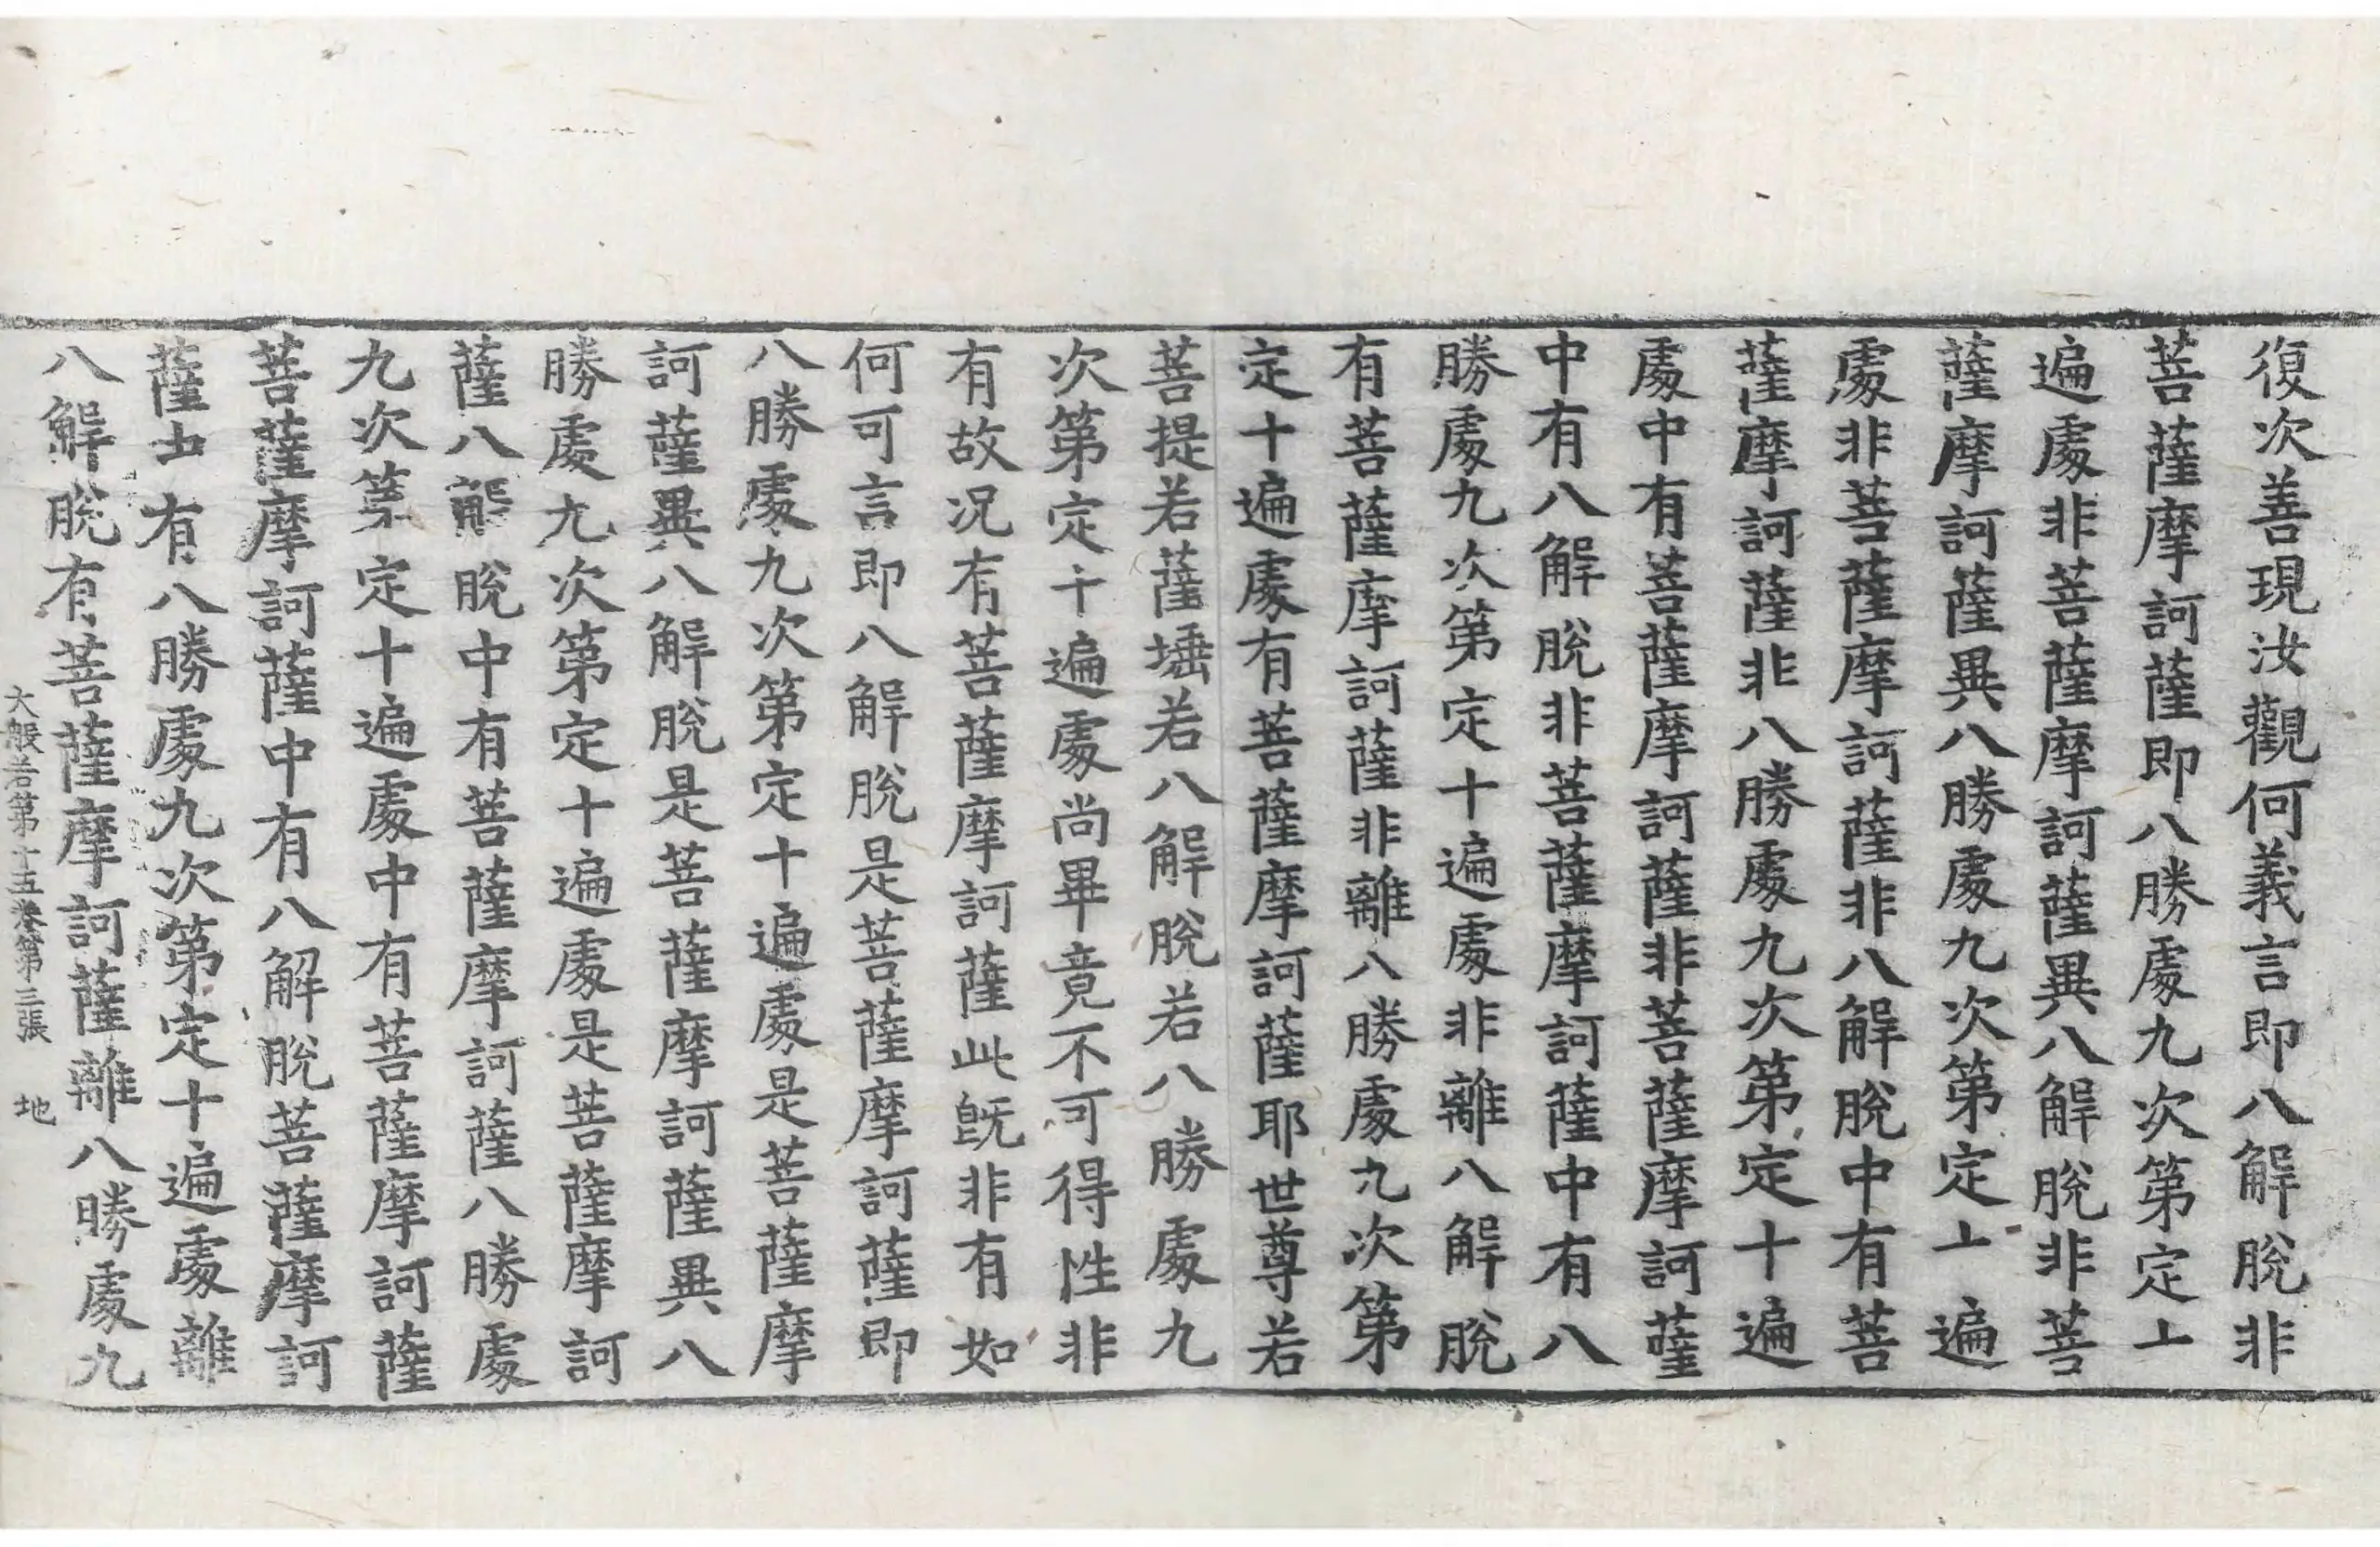 復次善現汝觀何義言即八解脫非
菩薩摩訶薩即八勝處九次第定十
遍處非菩薩摩訶薩異八解脫非菩
薩摩訶薩異八勝處九次第定十遍
處非菩薩摩訶薩非八解脫中有菩
薩摩訶薩非八勝處九次第定十遍
處中有菩薩摩訶薩非菩薩摩訶薩
中有八解脫非菩薩摩訶薩中有八
勝處九次第定十遍處非離八解脫
有菩薩摩訶薩非離八勝處九次第
定十遍處有菩薩摩訶薩耶世尊若
菩提若薩埵若八解脫若八勝處九
次第定十遍處尚畢竟不可得性非
有故況有菩薩摩訶薩此既非有如
何可言即八解脫是菩薩摩訶薩即
八勝處九次第定十遍處是菩薩摩
訶薩異八解脫是菩薩摩訶薩異八
勝處九次第定十遍處是菩薩摩訶
薩八解脫中有菩薩摩訶薩八勝處
九次第定十遍處中有菩薩摩訶薩
菩薩摩訶薩中有八解脫菩薩摩訶
薩中有八勝處九次第定十遍處離
八解脫有菩薩摩訶薩離八勝處九
大般若第十五卷第三張 地